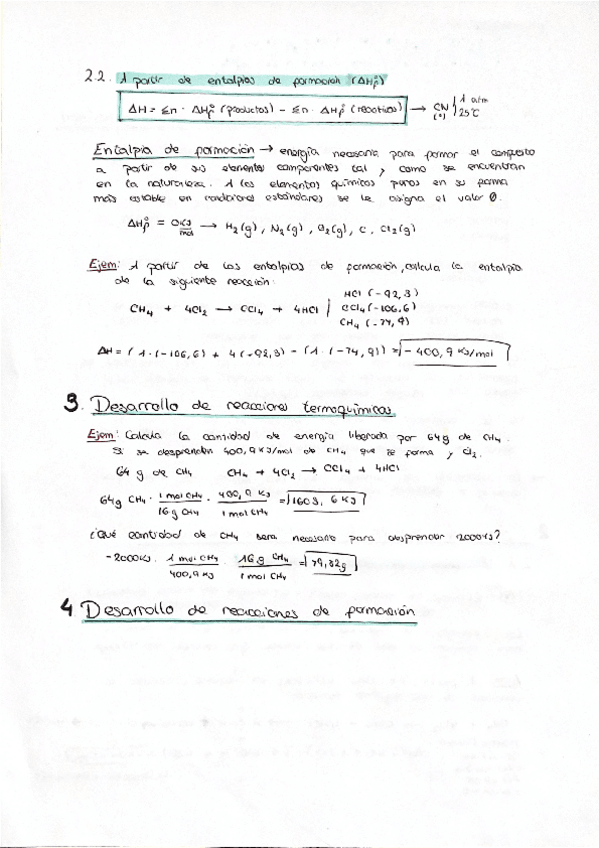 2.2. A partir de entalpias de formación (ΔHf°)
ΔH = Σn · ΔHf° (productos) - Σn · ΔHf° (reactivos) → CN (°) 1 atm 25°C
Entalpia de formación → energia necesaria para formar el compuesto
a partir de sus elementos componentes tal y como se encuentran
en la naturaleza. A los elementos químicos puros en su forma
más estable en condiciones estándares se le asigna el valor 0.
ΔHf° = 0 KJ/mol → H₂(g), N₂(g), O₂(g), C, Cl₂(g)
Ejem: A partir de las entalpias de formación, calcula la entalpia
de la siguiente reacción:
CH₄ + 4Cl₂ → CCl₄ + 4HCl
HCl (-92,3)
CCl₄ (-106,6)
CH₄ (-74,9)
ΔH = (1·(-106,6) + 4(-92,3) - (1·(-74,9)) = -400,9 KJ/mol
3. Desarrollo de reacciones termoquímicas
Ejem: Calcula la cantidad de energia liberada por 64g de CH₄.
Si se desprenden 400,9 KJ/mol de CH₄ que se forma y Cl₂.
64 g de CH₄ CH₄ + 4Cl₂ → CCl₄ + 4HCl
64g CH₄ · 1 mol CH₄/16g CH₄ · 400,9 KJ/1 mol CH₄ = 1603,6 KJ
¿Qué cantidad de CH₄ sera necesaria para desprender 2000KJ?
-2000KJ · 1 mol CH₄/400,9 KJ · 16g CH₄/1 mol CH₄ = 79,82g
4 Desarrollo de reacciones de formación